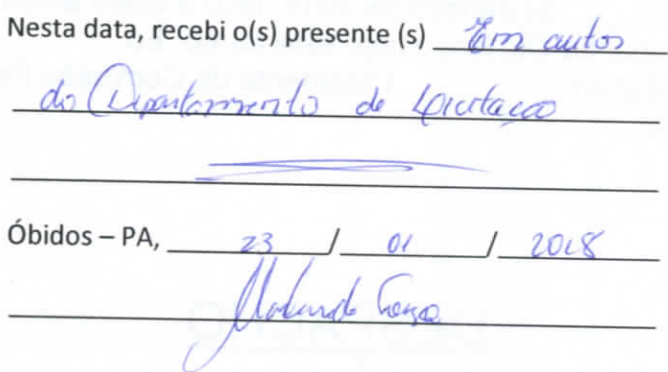 Nesta data, recebi o(s) presente (s) Em autos
do Departamento de Licitação
Óbidos – PA, 23 / 01 / 2018